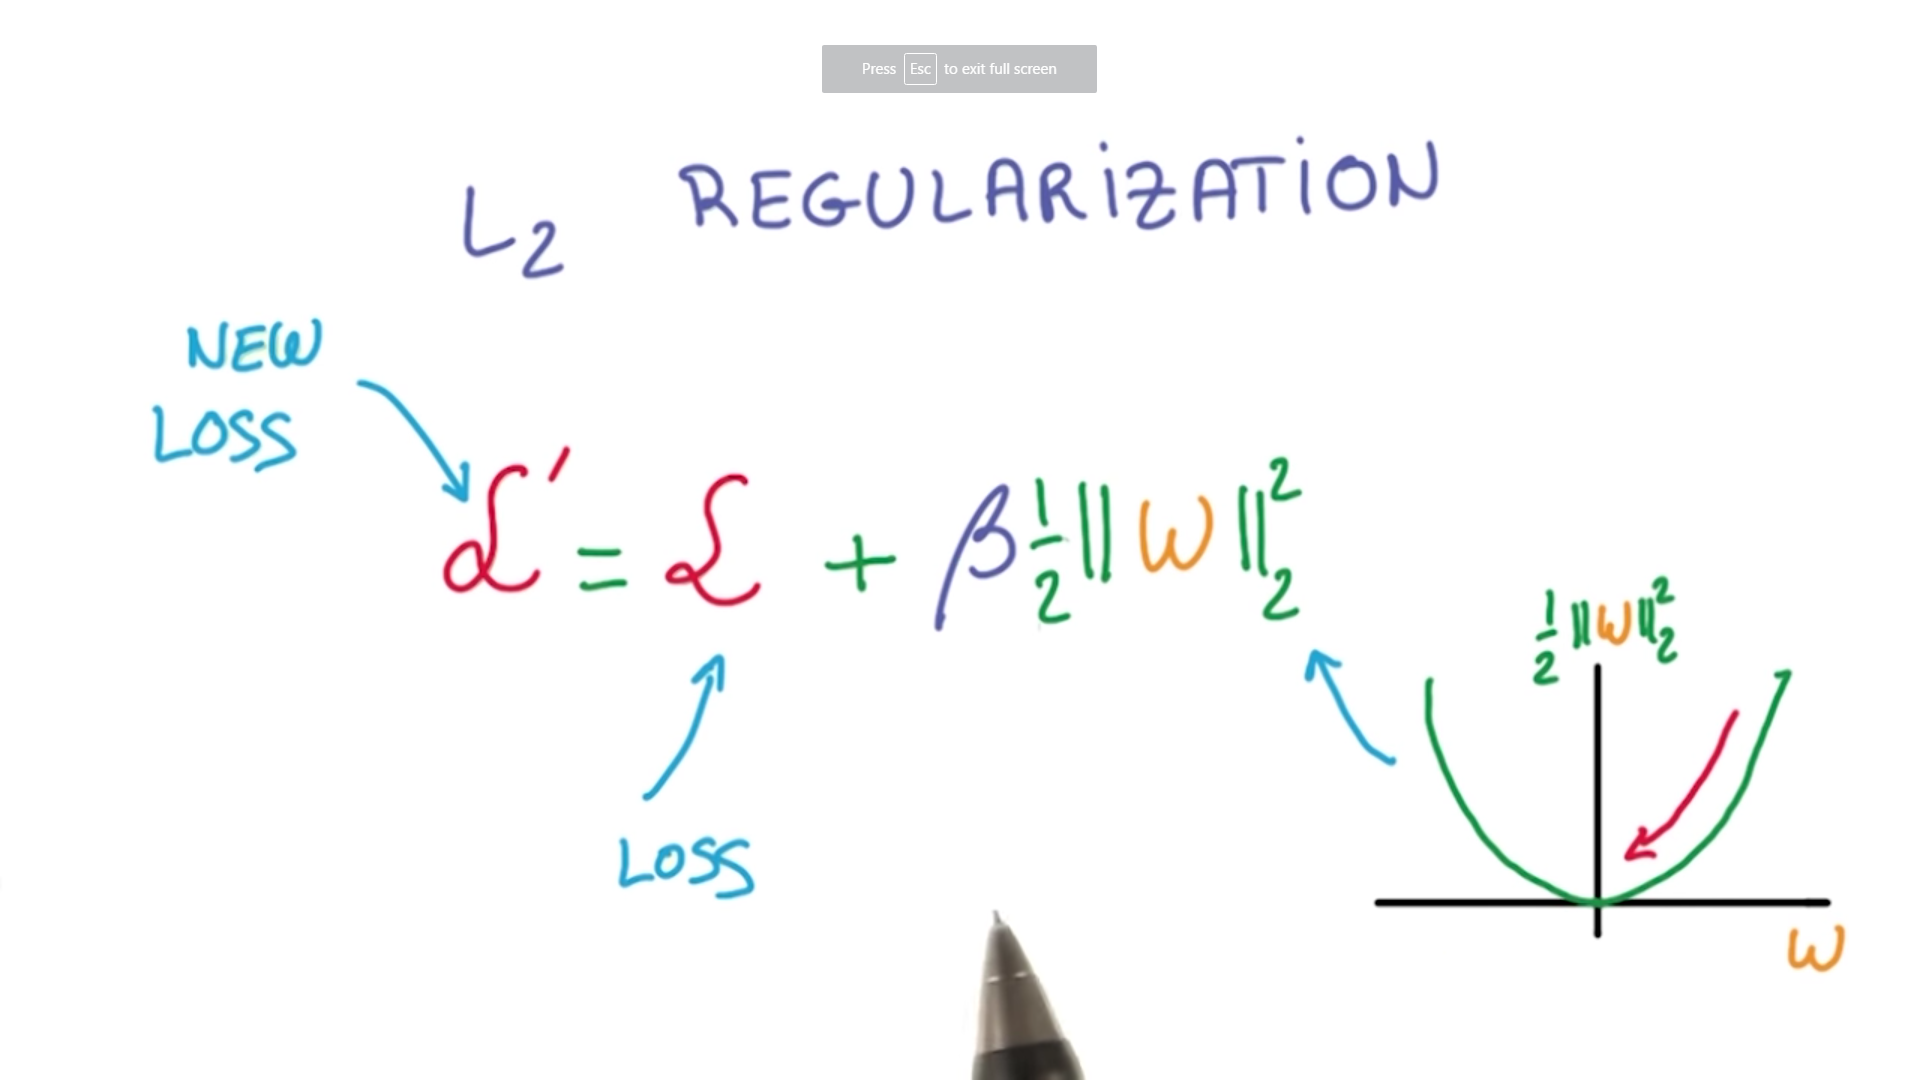 Press Esc to exit full screen
L₂ REGULARiZATiON
NEW
LOSS
ℒ' = ℒ + β ½ ||w||₂²
½ ||w||₂²
LOSS
w